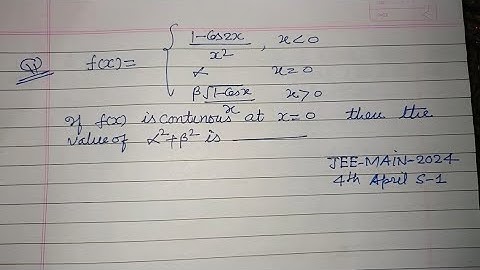 1-Cos2x / x² , x<0
Q) f(x)= { α x=0
β√1-Cosx / x x>0
If f(x) is continous at x=0 then the
value of α²+β² is ______
JEE-MAIN-2024
4th April S-1